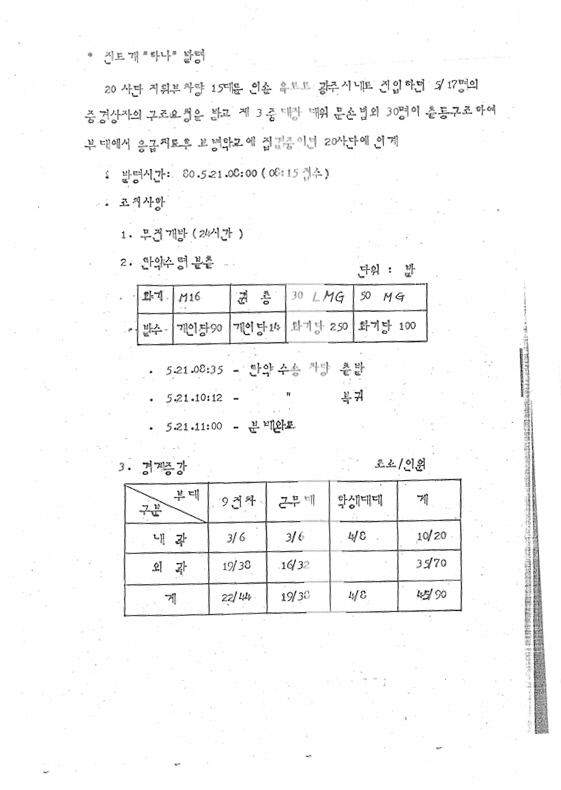 * 진도개 "하나" 발령
20 사단 지휘부차량 15대를 인솔 육로로 광주시내로 진입하던 5/17명의
중경상자의 구조요청을 받고 제 3 중대장 대위 문순범외 30명이 출동구조하여
부대에서 응급치료후 보병학교에 집결중이던 20사단에 인계
: 발령시간: 80.5.21.08:00 (08:15 접수)
. 조치사항
1. 무전개방 (24시간)
2. 탄약수령 분출
단위 : 발
화기 M16 권총 30 LMG 50 MG
발수 개인당90 개인당14 화기당 250 화기당 100
. 5.21.08:35 - 탄약 수송 차량 출발
. 5.21.10:12 - " 복귀
. 5.21.11:00 - 분배완료
3. 경계증강 초소/인원
부대
구분 9전차 근무대 학생대대 계
내곽 3/6 3/6 4/8 10/20
외곽 19/38 16/32 35/70
계 22/44 19/38 4/8 45/90